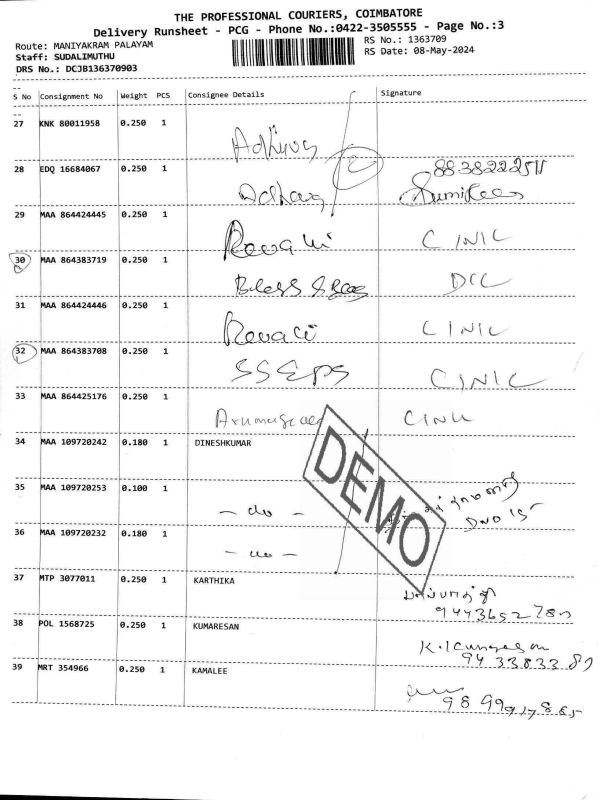 THE PROFESSIONAL COURIERS, COIMBATORE
Delivery Runsheet - PCG - Phone No.:0422-3505555 - Page No.:3
Route: MANIYAKRAM PALAYAM
RS No.: 1363709
Staff: SUDALIMUTHU
RS Date: 08-May-2024
DRS No.: DCJB136370903
S No Consignment No Weight PCS Consignee Details Signature
27 KNK 80011958 0.250 1
28 EDQ 16684067 0.250 1
29 MAA 864424445 0.250 1 CINIC
30 MAA 864383719 0.250 1
31 MAA 864424446 0.250 1 CINIC
32 MAA 864383708 0.250 1 CINIC
33 MAA 864425176 0.250 1
34 MAA 109720242 0.180 1 DINESHKUMAR
35 MAA 109720253 0.100 1 - do -
36 MAA 109720232 0.180 1 - do -
DEMO
37 MTP 3077011 0.250 1 KARTHIKA
38 POL 1568725 0.250 1 KUMARESAN
39 MRT 354966 0.250 1 KAMALEE